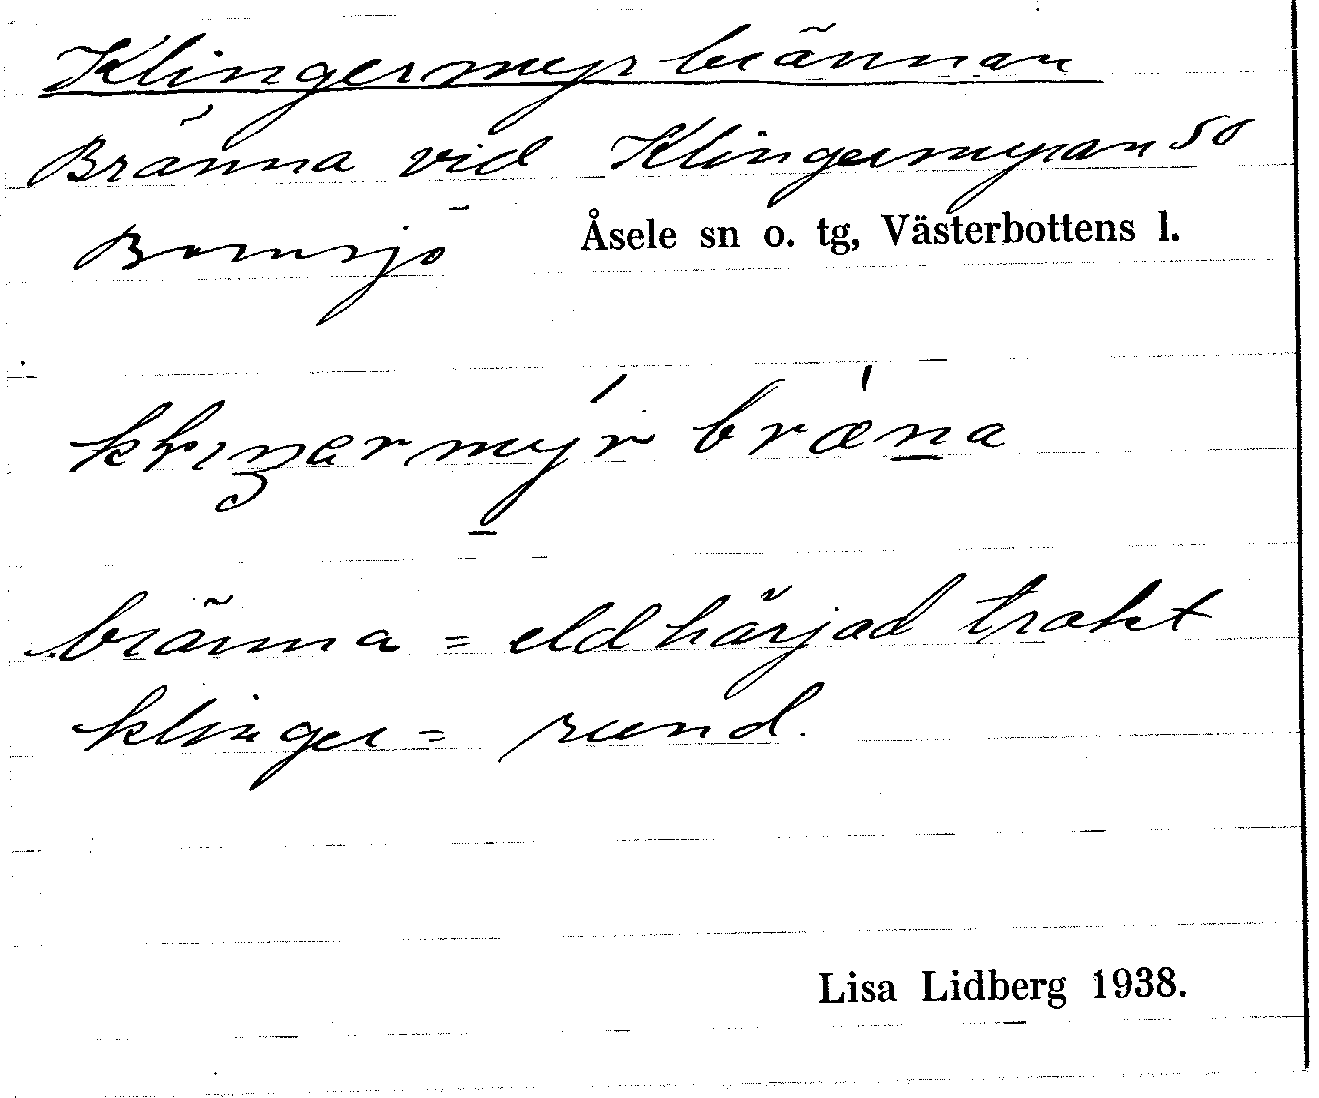 Klingermyrbrännan
Bränna vid Klingermyran SO
Bomsjö Åsele sn o. tg, Västerbottens l.
bränna = eldhärjad trakt
klinger = rund.
Lisa Lidberg 1938.